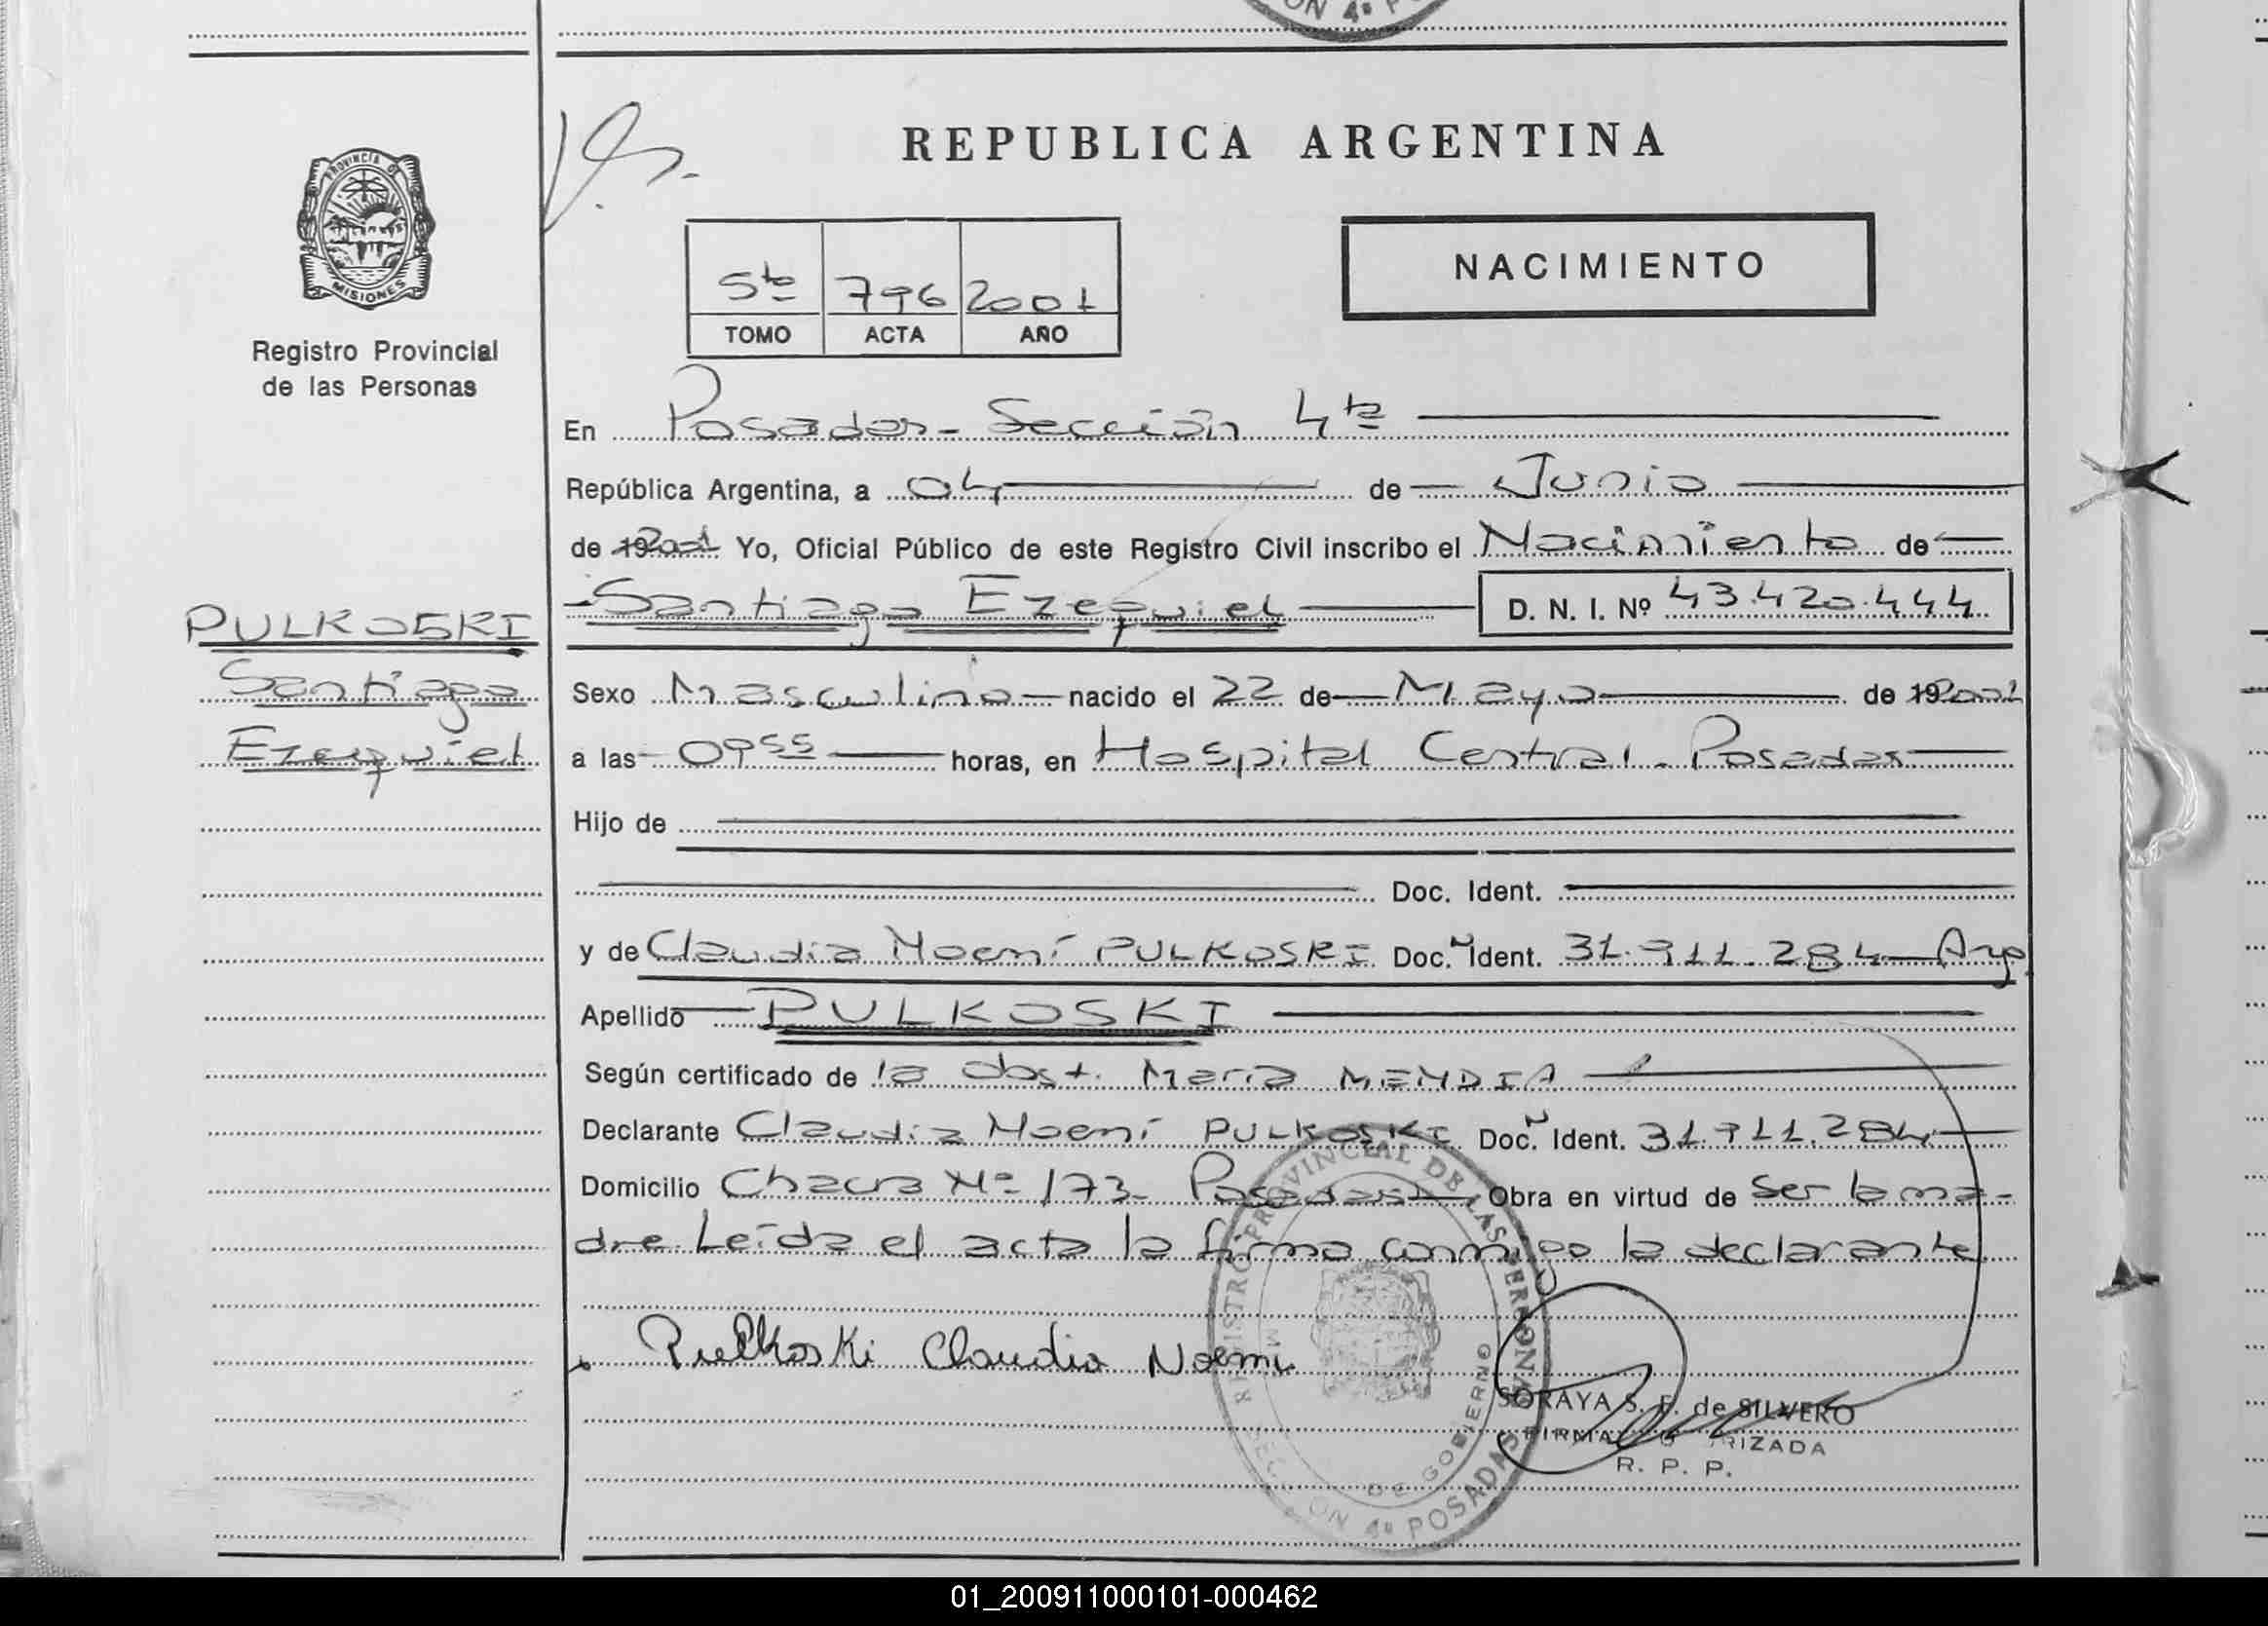 ON 4ª PO
REPUBLICA ARGENTINA
PROVINCIA DE
MISIONES
Registro Provincial
de las Personas
5to 796 2001
TOMO ACTA AÑO
NACIMIENTO
En Posadas - Sección 4ta
República Argentina, a 04 de Junio
de 192001 Yo, Oficial Público de este Registro Civil inscribo el Nacimiento de
Santiago Ezequiel D. N. I. Nº 43.420.444
PULKOSKI
Santiago
Ezequiel
Sexo Masculino nacido el 22 de Mayo de 192001
a las 0955 horas, en Hospital Central - Posadas
Hijo de
Doc. Ident.
y de Claudia Noemí PULKOSKI Doc. N Ident. 31.911.284 Arg
Apellido PULKOSKI
Según certificado de la obst. María MENDIA
Declarante Claudia Noemí PULKOSKI Doc. N Ident. 31.911.284
Domicilio Chacra Nº 173 - Posadas Obra en virtud de ser la ma-
dre. Leída el acta la firma conmigo la declarante
Pulkoski Claudia Noemi
REGISTRO PROVINCIAL DE LAS PERSONAS
DE GOBIERNO
SECCION 4ª POSADAS
SORAYA S. F. de SILVERO
FIRMA RIZADA
R. P. P.
01_200911000101-000462